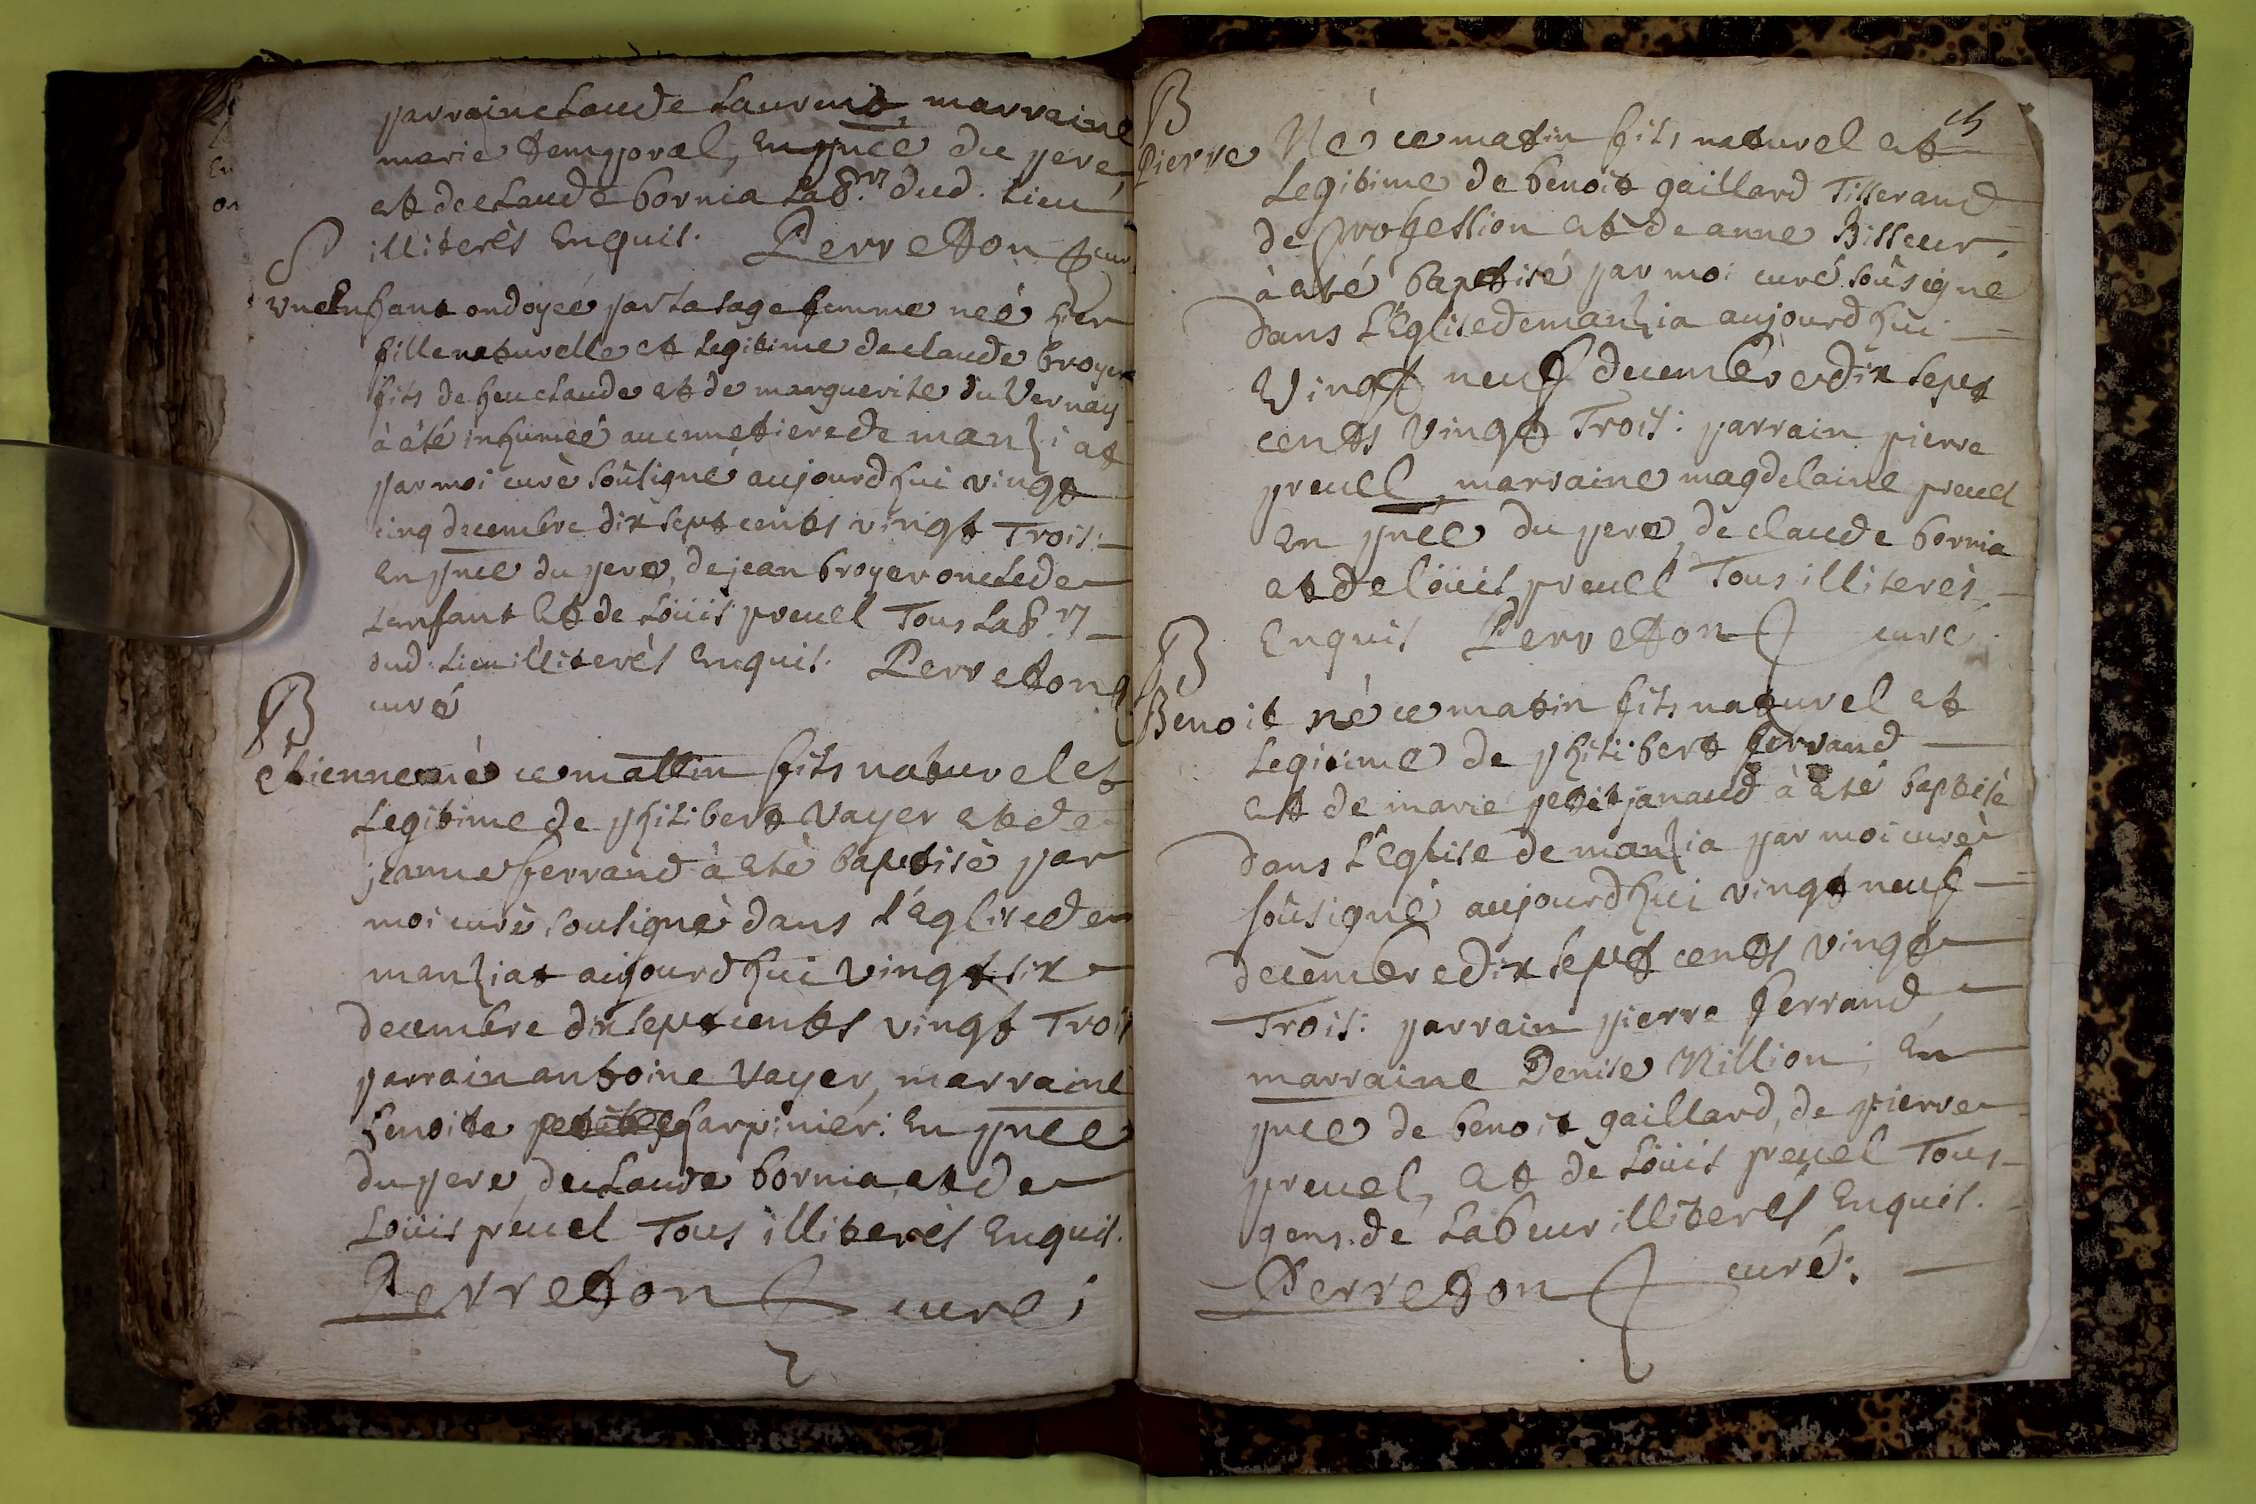 parrain claude Laurent, marraine
marie Temporal, En pnce du pere,
et de claude bornia Lab.rs dud. Lieu
illiterés Enquis. Perreton curé
S
un Enfant ondoyée par la sage femme neé hier
fille naturelle et Legitime de claude broyer
fils de feu claude et de marguerite du Vernay
à été inhumeé au cimetiere de manziat
par moi curé soûsigné aujourd hui vingt
cinq decembre dix sept cents vingt Trois:
En pnce du pere, de jean broyer oncle de
L'enfant Et de Loüis preuel Tous Lab.rs
dud. Lieu illiterés Enquis. Perreton
curé
B
étienne né ce mattin fils naturel et
Legitime de philibert Vayer et de
jeanne ferrand à été baptisé par
moi curé sousigné dans L'Eglise de
manziat aujourd hui Vingt six
decembre dix sept cents vingt Trois
parrain antoine Vayer, marraine
benoite charpinier: En pnce
du pere, de claude bornia, et de
Loüis preuel Tous illiterés Enquis.
Perreton curé;
B
Pierre Né ce matin fils naturel et
Legitime de benoit gaillard Tisserand
de profession et de anne Bisseur,
à eté baptisé par moi curé soûsigné
dans L'Eglise de manzia aujourd hui
Vingt neuf decembre dix sept
cents Vingt Trois: parrain pierre
preuel, marraine magdelaine preuel
En pnce du pere, de claude bornia
et de loüis preuel Tous illiterés,
Enquis Perreton curé
B
Benoit né ce matin fils naturel et
Legitime de philibert ferrand
et de marie petitjanaud à eté baptisé
dans L'Eglise de manzia par moi curé
soûsigné aujourd hui vingt neuf
decembre dix sept cents vingt
Trois: parrain pierre ferrand,
marraine Denise Nillion; En
pnce de benoit gaillard, de pierre
preuel, et de Loüis preuel Tous
gens de Labeur illiterés Enquis.
Perreton curé.